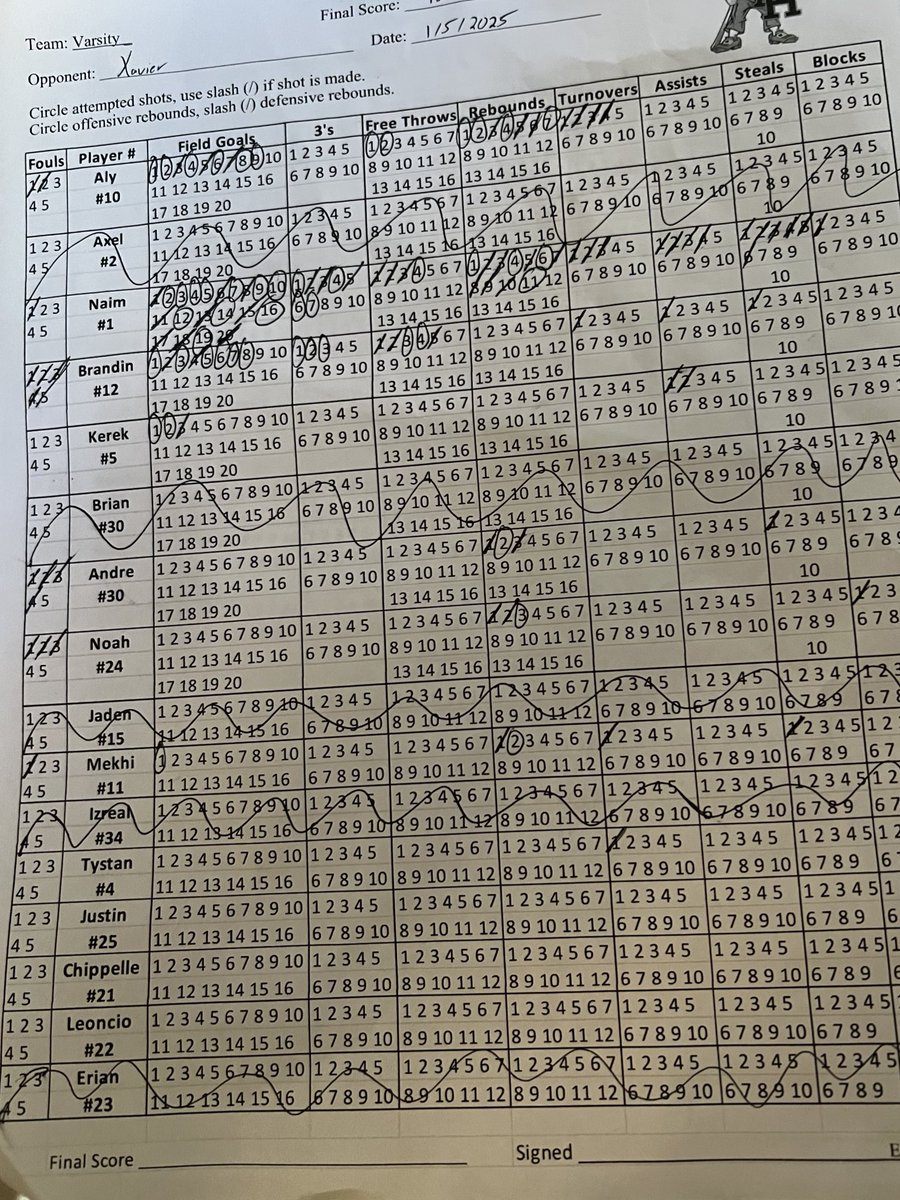 Final Score:
Team: Varsity
Date: 1/5/2025
Opponent: Xavier
Circle attempted shots, use slash (/) if shot is made.
Circle offensive rebounds, slash (/) defensive rebounds.
Fouls Player # Field Goals 3's Free Throws Rebounds Turnovers Assists Steals Blocks
1 2 3 Aly 1 2 3 4 5 6 7 8 9 10 1 2 3 4 5 1 2 3 4 5 6 7 1 2 3 4 5 6 7 1 2 3 4 5 1 2 3 4 5 1 2 3 4 5 1 2 3 4 5
4 5 #10 11 12 13 14 15 16 6 7 8 9 10 8 9 10 11 12 8 9 10 11 12 6 7 8 9 10 6 7 8 9 10 6 7 8 9 6 7 8 9 10
17 18 19 20 13 14 15 16 13 14 15 16 10
1 2 3 Axel 1 2 3 4 5 6 7 8 9 10 1 2 3 4 5 1 2 3 4 5 6 7 1 2 3 4 5 6 7 1 2 3 4 5 1 2 3 4 5 1 2 3 4 5 1 2 3 4 5
4 5 #2 11 12 13 14 15 16 6 7 8 9 10 8 9 10 11 12 8 9 10 11 12 6 7 8 9 10 6 7 8 9 10 6 7 8 9 6 7 8 9 10
17 18 19 20 13 14 15 16 13 14 15 16 10
1 2 3 Naim 1 2 3 4 5 6 7 8 9 10 1 2 3 4 5 1 2 3 4 5 6 7 1 2 3 4 5 6 7 1 2 3 4 5 1 2 3 4 5 1 2 3 4 5 1 2 3 4 5
4 5 #1 11 12 13 14 15 16 6 7 8 9 10 8 9 10 11 12 8 9 10 11 12 6 7 8 9 10 6 7 8 9 10 6 7 8 9 6 7 8 9 10
17 18 19 20 13 14 15 16 13 14 15 16 10
1 2 3 Brandin 1 2 3 4 5 6 7 8 9 10 1 2 3 4 5 1 2 3 4 5 6 7 1 2 3 4 5 6 7 1 2 3 4 5 1 2 3 4 5 1 2 3 4 5 1 2 3 4 5
4 5 #12 11 12 13 14 15 16 6 7 8 9 10 8 9 10 11 12 8 9 10 11 12 6 7 8 9 10 6 7 8 9 10 6 7 8 9 6 7 8 9 10
17 18 19 20 13 14 15 16 13 14 15 16 10
1 2 3 Kerek 1 2 3 4 5 6 7 8 9 10 1 2 3 4 5 1 2 3 4 5 6 7 1 2 3 4 5 6 7 1 2 3 4 5 1 2 3 4 5 1 2 3 4 5 1 2 3 4 5
4 5 #5 11 12 13 14 15 16 6 7 8 9 10 8 9 10 11 12 8 9 10 11 12 6 7 8 9 10 6 7 8 9 10 6 7 8 9 6 7 8 9
17 18 19 20 13 14 15 16 13 14 15 16 10
1 2 3 Brian 1 2 3 4 5 6 7 8 9 10 1 2 3 4 5 1 2 3 4 5 6 7 1 2 3 4 5 6 7 1 2 3 4 5 1 2 3 4 5 1 2 3 4 5 1 2 3 4
4 5 #30 11 12 13 14 15 16 6 7 8 9 10 8 9 10 11 12 8 9 10 11 12 6 7 8 9 10 6 7 8 9 10 6 7 8 9 6 7 8 9
17 18 19 20 13 14 15 16 13 14 15 16 10
1 2 3 Andre 1 2 3 4 5 6 7 8 9 10 1 2 3 4 5 1 2 3 4 5 6 7 1 2 3 4 5 6 7 1 2 3 4 5 1 2 3 4 5 1 2 3 4 5 1 2 3 4
4 5 #30 11 12 13 14 15 16 6 7 8 9 10 8 9 10 11 12 8 9 10 11 12 6 7 8 9 10 6 7 8 9 10 6 7 8 9 6 7 8
17 18 19 20 13 14 15 16 13 14 15 16 10
1 2 3 Noah 1 2 3 4 5 6 7 8 9 10 1 2 3 4 5 1 2 3 4 5 6 7 1 2 3 4 5 6 7 1 2 3 4 5 1 2 3 4 5 1 2 3 4 5 1 2 3
4 5 #24 11 12 13 14 15 16 6 7 8 9 10 8 9 10 11 12 8 9 10 11 12 6 7 8 9 10 6 7 8 9 10 6 7 8 9 6 7 8
17 18 19 20 13 14 15 16 13 14 15 16 10
1 2 3 Jaden 1 2 3 4 5 6 7 8 9 10 1 2 3 4 5 1 2 3 4 5 6 7 1 2 3 4 5 6 7 1 2 3 4 5 1 2 3 4 5 1 2 3 4 5 1 2 3
4 5 #15 11 12 13 14 15 16 6 7 8 9 10 8 9 10 11 12 8 9 10 11 12 6 7 8 9 10 6 7 8 9 10 6 7 8 9 6 7 8
1 2 3 Mekhi 1 2 3 4 5 6 7 8 9 10 1 2 3 4 5 1 2 3 4 5 6 7 1 2 3 4 5 6 7 1 2 3 4 5 1 2 3 4 5 1 2 3 4 5 1 2
4 5 #11 11 12 13 14 15 16 6 7 8 9 10 8 9 10 11 12 8 9 10 11 12 6 7 8 9 10 6 7 8 9 10 6 7 8 9 6 7
1 2 3 Izreal 1 2 3 4 5 6 7 8 9 10 1 2 3 4 5 1 2 3 4 5 6 7 1 2 3 4 5 6 7 1 2 3 4 5 1 2 3 4 5 1 2 3 4 5 1 2
4 5 #34 11 12 13 14 15 16 6 7 8 9 10 8 9 10 11 12 8 9 10 11 12 6 7 8 9 10 6 7 8 9 10 6 7 8 9 6 7
1 2 3 Tystan 1 2 3 4 5 6 7 8 9 10 1 2 3 4 5 1 2 3 4 5 6 7 1 2 3 4 5 6 7 1 2 3 4 5 1 2 3 4 5 1 2 3 4 5 1 2
4 5 #4 11 12 13 14 15 16 6 7 8 9 10 8 9 10 11 12 8 9 10 11 12 6 7 8 9 10 6 7 8 9 10 6 7 8 9 6
1 2 3 Justin 1 2 3 4 5 6 7 8 9 10 1 2 3 4 5 1 2 3 4 5 6 7 1 2 3 4 5 6 7 1 2 3 4 5 1 2 3 4 5 1 2 3 4 5 1
4 5 #25 11 12 13 14 15 16 6 7 8 9 10 8 9 10 11 12 8 9 10 11 12 6 7 8 9 10 6 7 8 9 10 6 7 8 9 6
1 2 3 Chippelle 1 2 3 4 5 6 7 8 9 10 1 2 3 4 5 1 2 3 4 5 6 7 1 2 3 4 5 6 7 1 2 3 4 5 1 2 3 4 5 1 2 3 4 5 1
4 5 #21 11 12 13 14 15 16 6 7 8 9 10 8 9 10 11 12 8 9 10 11 12 6 7 8 9 10 6 7 8 9 10 6 7 8 9
1 2 3 Leoncio 1 2 3 4 5 6 7 8 9 10 1 2 3 4 5 1 2 3 4 5 6 7 1 2 3 4 5 6 7 1 2 3 4 5 1 2 3 4 5 1 2 3 4 5
4 5 #22 11 12 13 14 15 16 6 7 8 9 10 8 9 10 11 12 8 9 10 11 12 6 7 8 9 10 6 7 8 9 10 6 7 8 9
1 2 3 Erian 1 2 3 4 5 6 7 8 9 10 1 2 3 4 5 1 2 3 4 5 6 7 1 2 3 4 5 6 7 1 2 3 4 5 1 2 3 4 5 1 2 3 4 5
4 5 #23 11 12 13 14 15 16 6 7 8 9 10 8 9 10 11 12 8 9 10 11 12 6 7 8 9 10 6 7 8 9 10 6 7 8 9
Final Score Signed